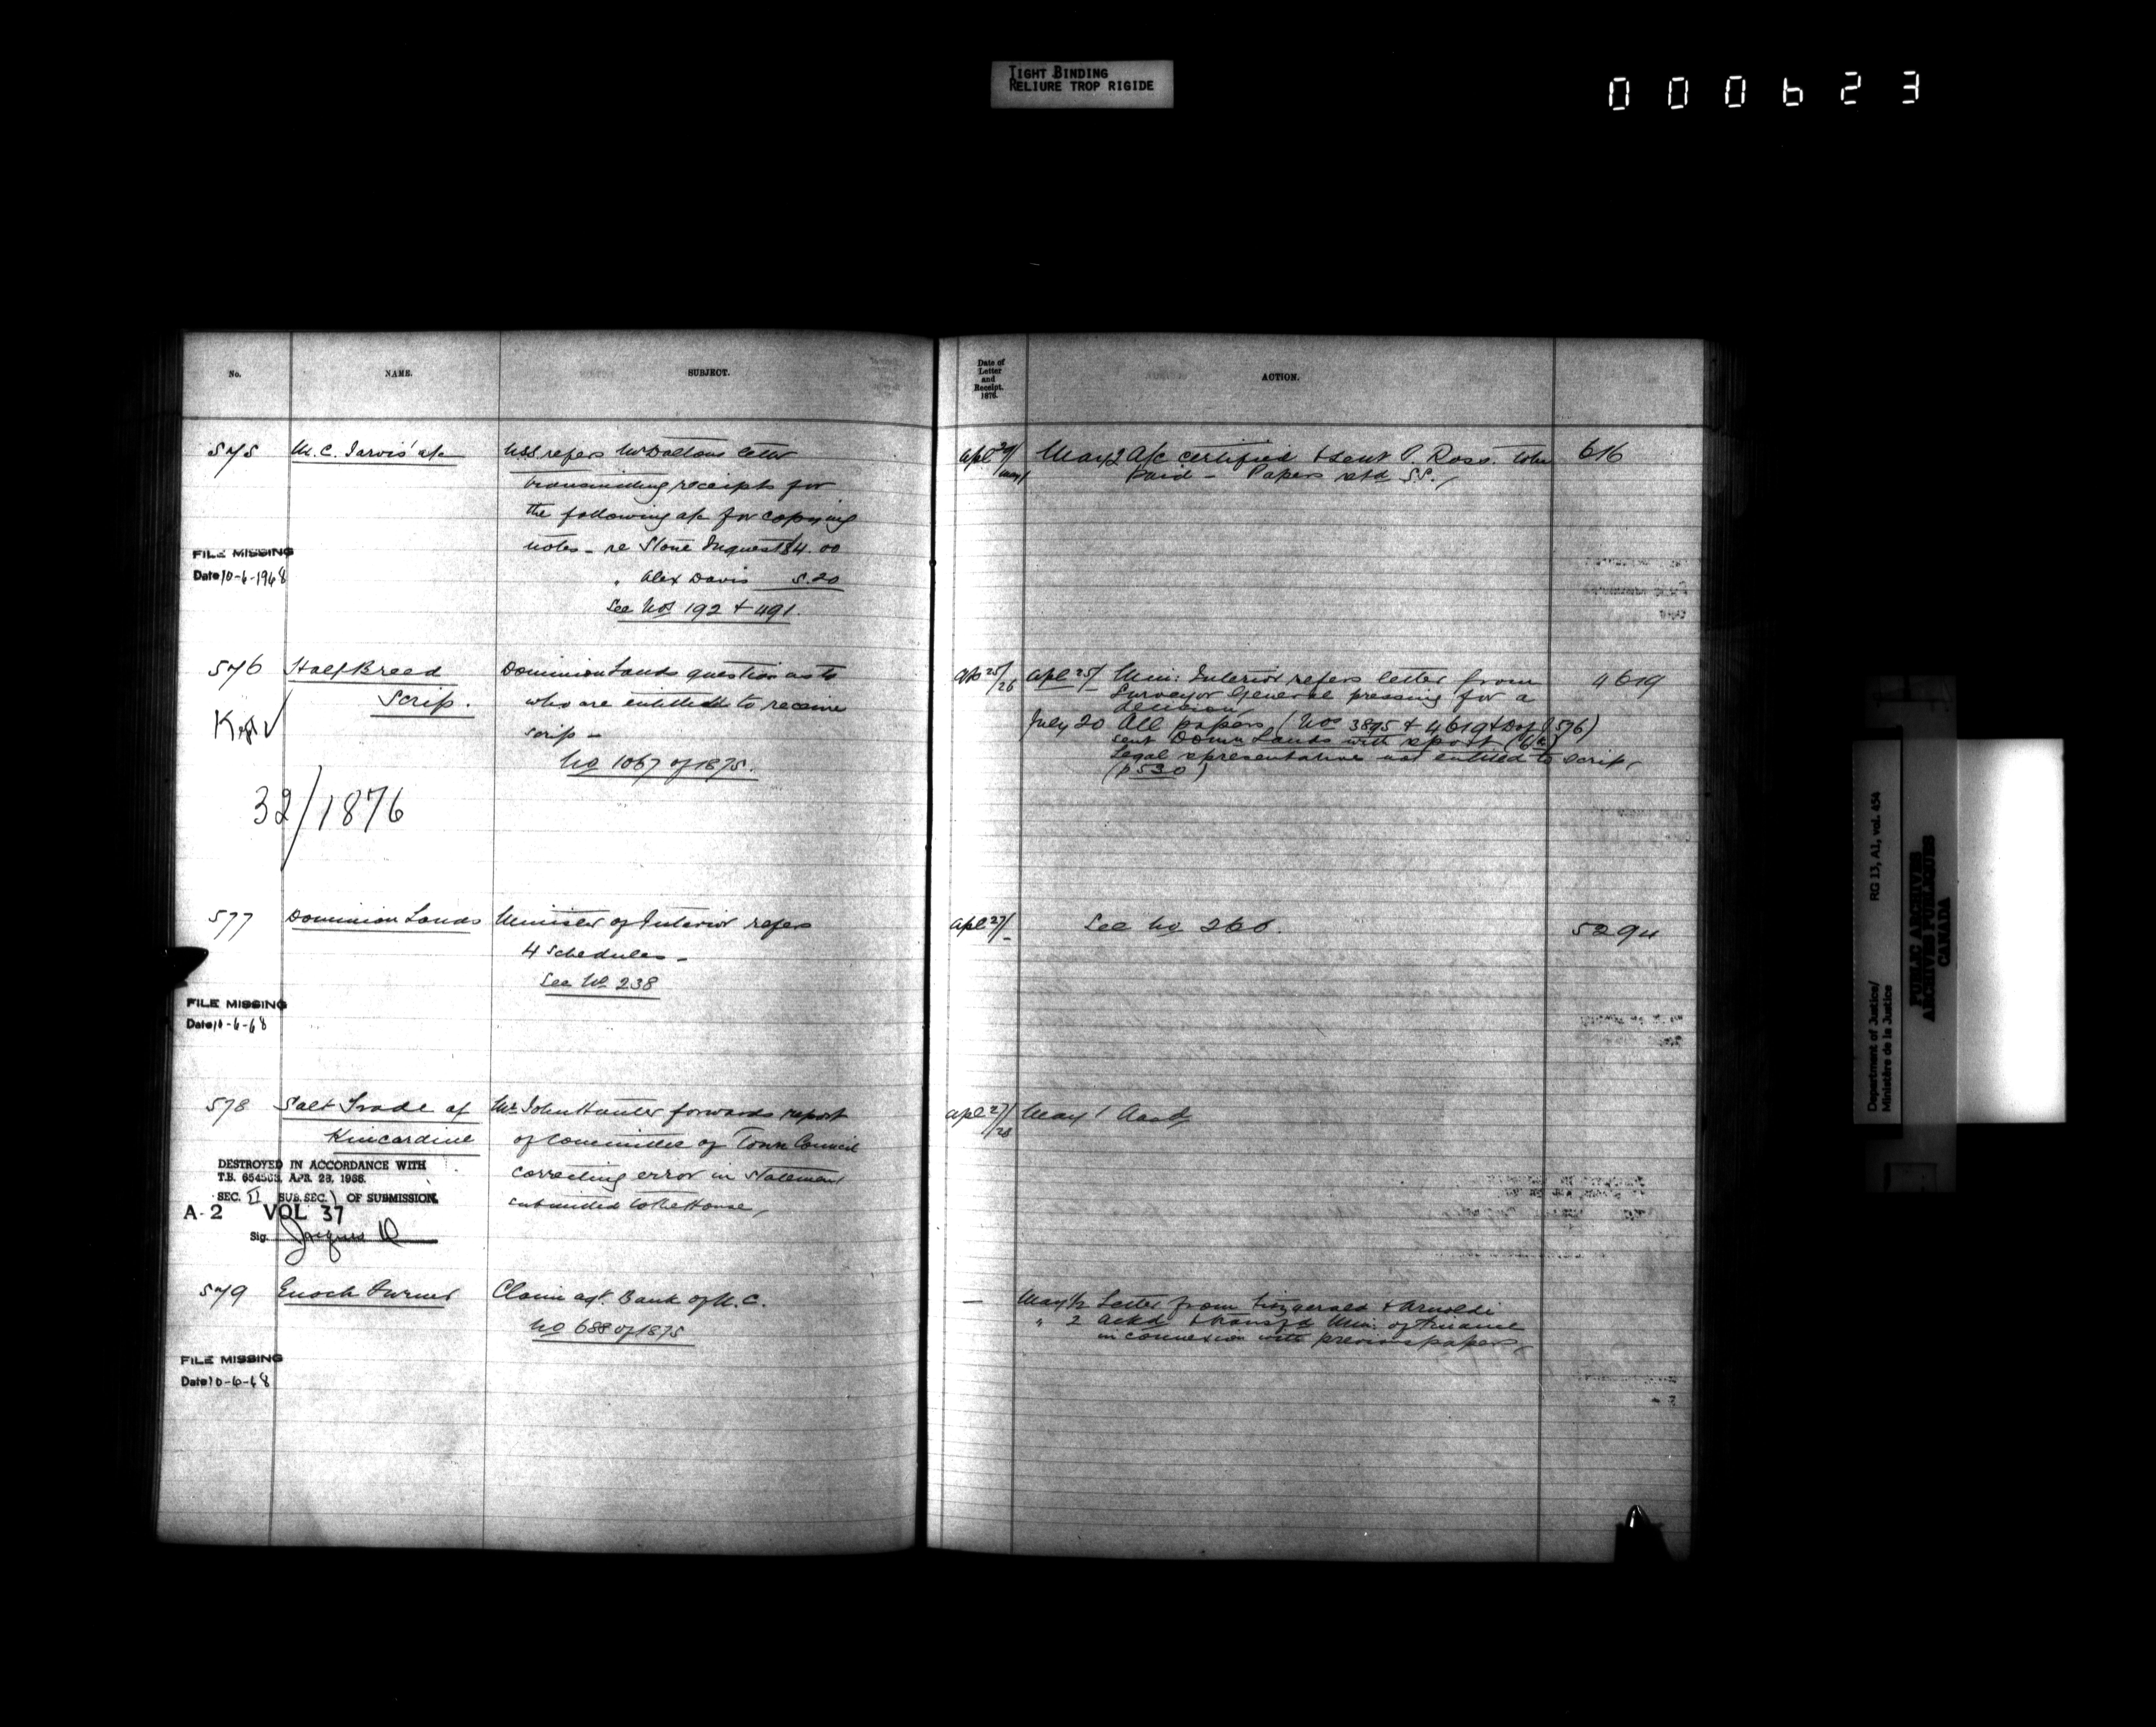 TIGHT BINDING
RELIURE TROP RIGIDE
000623
No.
NAME.
SUBJECT.
Date of
Letter
and
Receipt.
1876.
ACTION.
575
M. C. Jarvis' a/c
USS refers Mr Daltons letter
transmitting receipts for
the following a/c for copying
notes - re Stone Inquest $4.00
" Alex Davis 5.20
See Nos 192 + 491.
FILE MISSING
Date 10-6-1968
apl 29/
may 1
May 2 A/c certified & sent A. Ross. to be
Paid - Papers retd S.S.
616
576
Half Breed
Scrip.
Kept √
32/1876
Dominion Lands question as to
who are entitled to receive
scrip -
No 1067 of 1875.
apl 25/
26
apl 25/ Min: Interior refers letter from
Surveyor General pressing for a
decision
July 20 All papers (Nos 3895 + 4619 + Dof J 576)
sent Domn Lands with report
Legal representative not entitled to scrip
(p 530)
4619
577
Dominion Lands
Minister of Interior refers
4 Schedules -
See No 238
FILE MISSING
Date 10-6-68
apl 27/
See No 260.
5294
578
Salt Trade of
Kincardine
Mr John Hunter forwards report
of Committee of Town Council
correcting error in statement
submitted to the House,
DESTROYED IN ACCORDANCE WITH
T.B. 654503, APR. 28, 1966.
SEC. II SUB.SEC. 1 OF SUBMISSION.
A-2 VOL 37
Sig.
apl 27/
/28
May 1 Ackd
579
Enoch Turner
Claim agt. Bank of U.C.
No 688 of 1875
FILE MISSING
Date 10-6-68
May 1/2 Letter from Fitzgerald & Arnoldi
" 2 Ackd & transfd Min: of Finance
in connexion with previous papers
Department of Justice/
Ministère de la Justice
RG 13, A1, vol. 454
PUBLIC ARCHIVES
ARCHIVES PUBLIQUES
CANADA